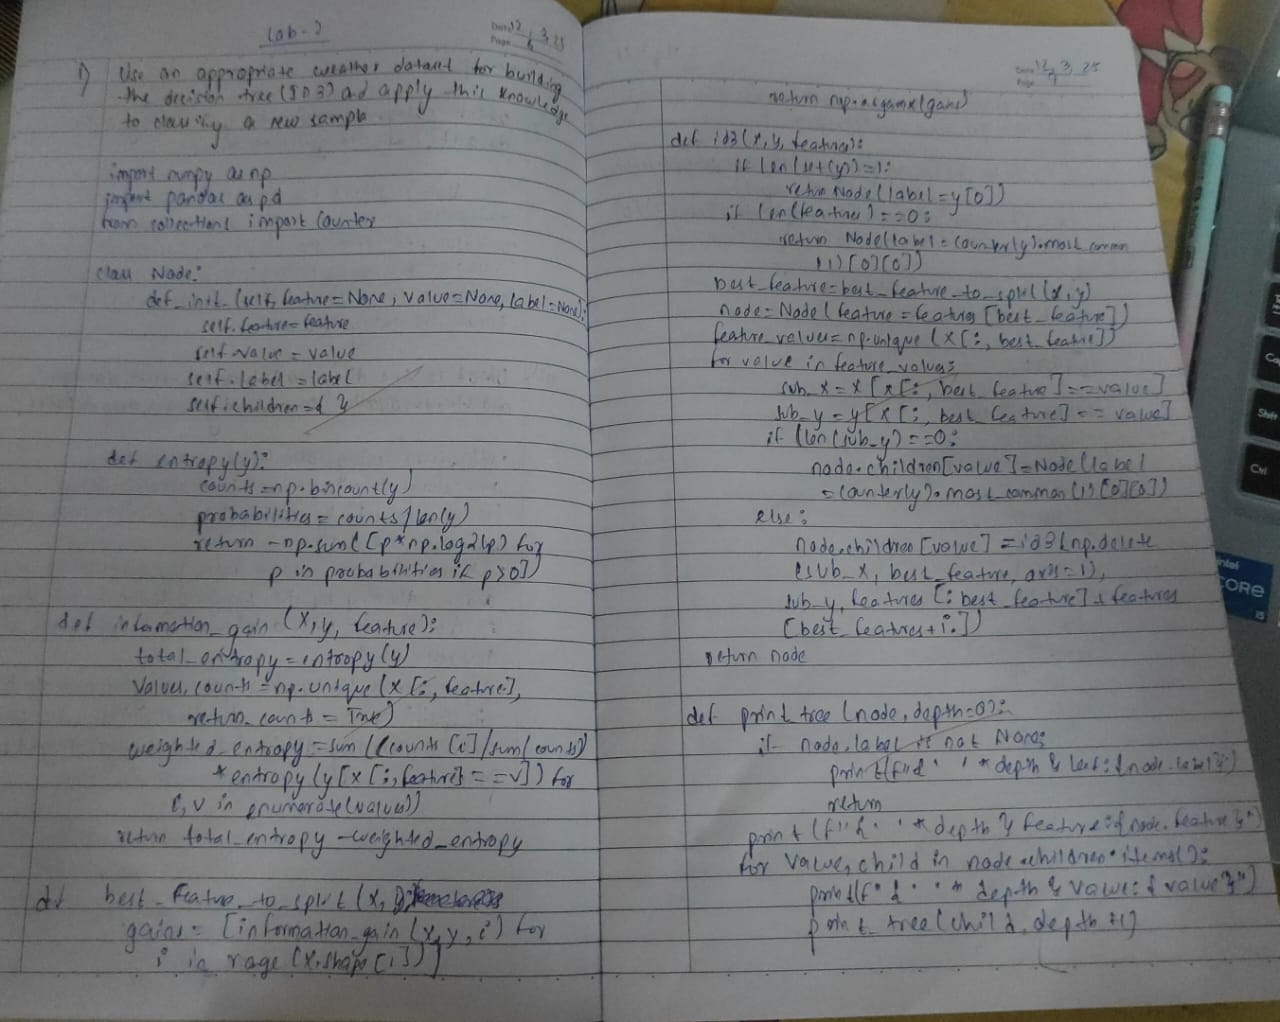 Lab-2
Date 12 3 25
Page 6
1) Use an appropriate weather dataset for building
the decision tree (ID3) and apply this knowledge
to classify a new sample
import numpy as np
import pandas as pd
from collections import Counter
class Node:
def_init_(self, feature=None, value=None, label=None):
self.feature=feature
self.value = value
self.label = label
self.children = { }
def entropy(y):
counts = np.bincount(y)
probabilities = counts/len(y)
return -np.sum([p*np.log2(p) for
p in probabilities if p>0])
def infomation_gain (X, y, feature):
total_entropy = entropy(y)
Values, counts = np.unique (X[:, feature],
return_counts = True)
weighted_entropy = sum ((counts [i]/sum(counts))
* entropy (y[X[:, feature] == v]) for
i, v in enumerate(values))
return total_entropy - weighted_entropy
def best_feature_to_split (X, y):
gains = [information_gain (X, y, i) for
i in rage (X.shape[1])]
Date 12 3 25
Page 7
return np.argmax(gains)
def id3(X, y, features):
if len(set(y))==1:
return Node(label=y[0])
if len(features)==0:
return Node(label=Counter(y).most_common
(1)[0][0])
best_feature=best_feature_to_split (X, y)
node= Node( feature = features [best_feature])
feature_values = np.unique (X[:, best_feature])
for value in feature_values:
sub_X = X [X[:, best_feature]==value]
sub_y = y[X[:, best_feature] == value]
if (len(sub_y)==0:
node.children[value]=Node(label
=Counter(y).most_common(1)[0][0])
else:
node.children[value] = id3(np.delete
(sub_X, best_feature, axis=1),
sub_y, features [:best_feature]+features
[best_features+1:])
return node
def print tree (node, depth=0):
if node.label is not None:
print(f"{' ' * depth} Leaf: {node.label}")
return
print (f"{' ' * depth } Feature: {node.feature}")
for value, child in node.children.items():
print(f"{' ' * depth} Value: {value}")
print_tree(child, depth+1)
Caps
Shift
Ctrl
intel
CORE
i5